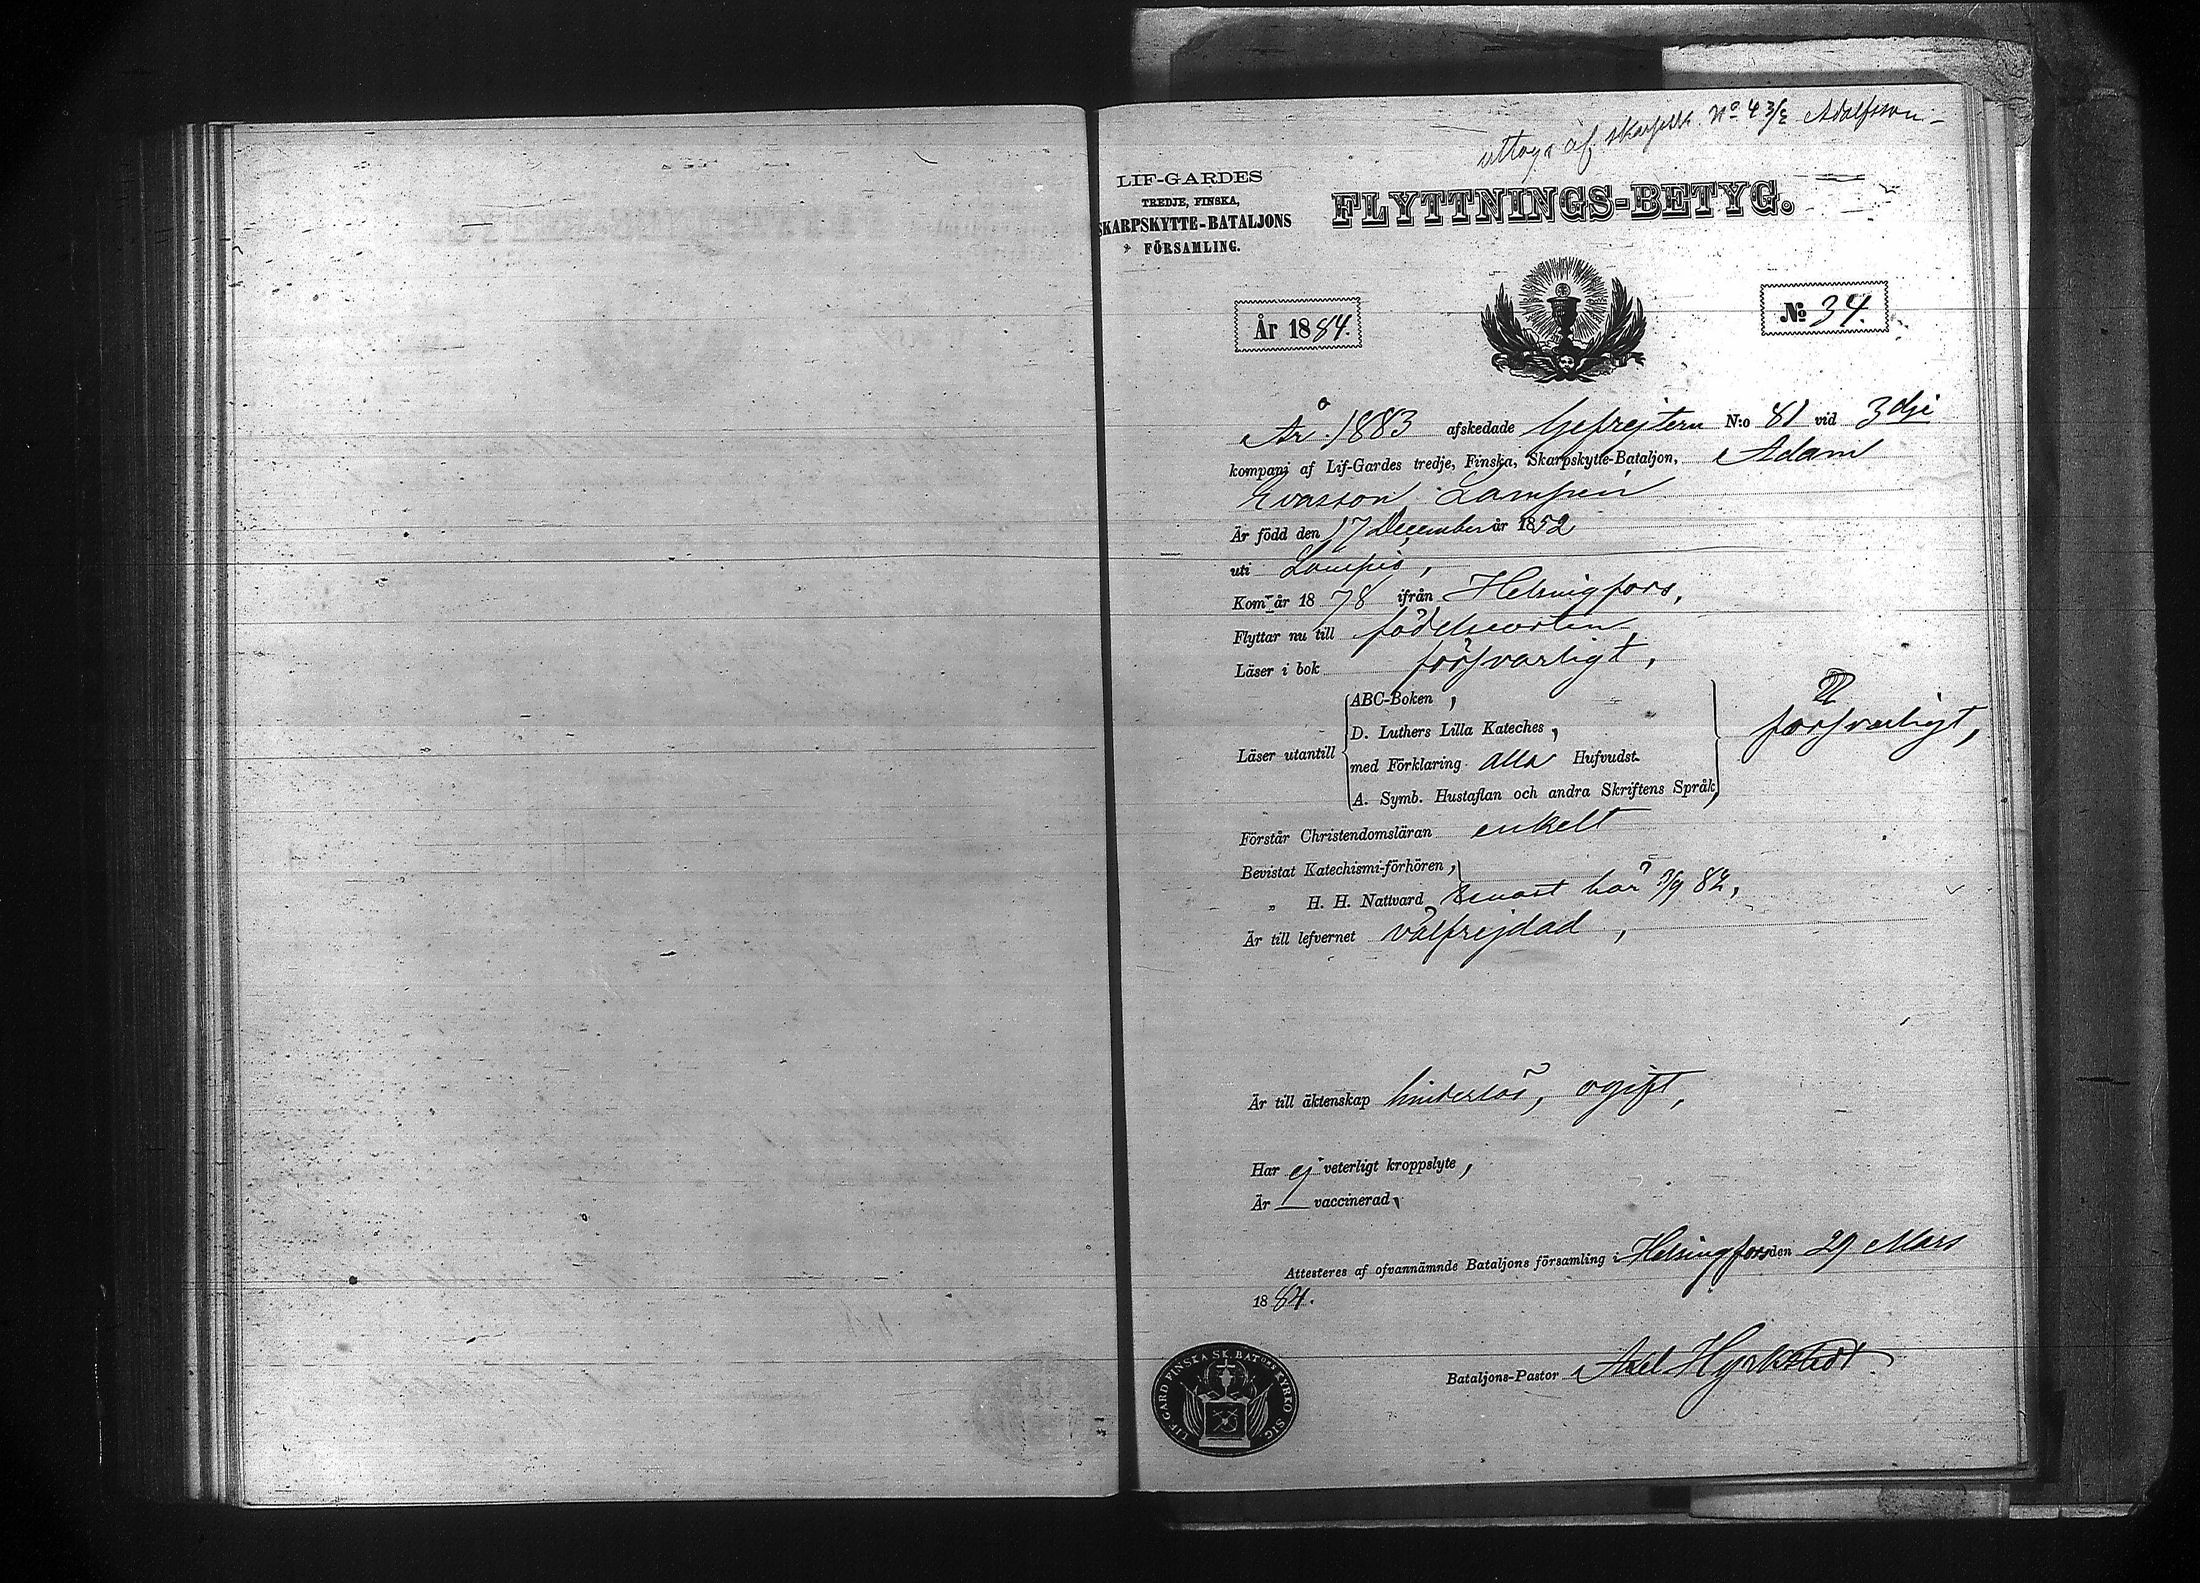 uttogs af skarpsk. No 4 3/2 Adolfsson
LIF-GARDES
TREDJE, FINSKA,
SKARPSKYTTE-BATALJONS
FÖRSAMLING.
FLYTTNINGS-BETYG.
År 1884.
№ 34.
År 1883 afskedade Gefrejtern N:o 81 vid 3dje
kompani af Lif-Gardes tredje, Finska, Skarpskytte-Bataljon, Adam
Evasson Lampén
Är född den 17 December år 1852
uti Lampis,
Kom år 1878 ifrån Helsingfors,
Flyttar nu till födelseorten,
Läser i bok försvarligt,
Läser utantill
ABC-Boken,
D. Luthers Lilla Kateches,
med Förklaring alla Hufvudst.
A. Symb. Hustaflan och andra Skriftens Språk,
försvarligt,
Förstår Christendomsläran enkelt
Bevistat Katechismi-förhören,
„ H. H. Nattvard senast här 3/9 82,
Är till lefvernet välfrejdad,
Är till äktenskap hinderlös, ogift,
Har ej veterligt kroppslyte,
Är — vaccinerad,
Attesteres af ofvannämnde Bataljons församling i Helsingfors den 29 Mars
1884.
Bataljons-Pastor Axel Hyrkstedt
LIF GARD FINSKA SK. BAT:ONS KYRKO SIG.